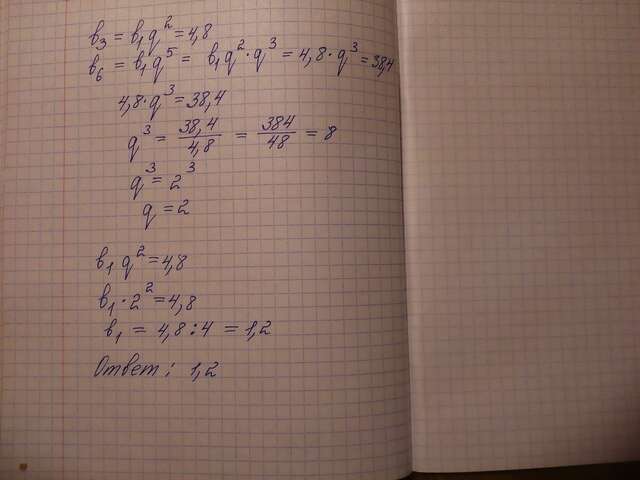 b₃ = b₁q² = 4,8
b₆ = b₁q⁵ = b₁q² · q³ = 4,8 · q³ = 38,4
4,8 · q³ = 38,4
q³ = 38,4/4,8 = 384/48 = 8
q³ = 2³
q = 2
b₁ q² = 4,8
b₁ · 2² = 4,8
b₁ = 4,8 : 4 = 1,2
Ответ: 1,2